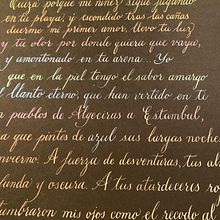 Quizá porque mi niñez sigue jugando
en tu playa, y escondido tras las cañas
duerme mi primer amor, llevo tu luz
y tu olor por donde quiera que vaya,
y amontonado en tu arena... Yo
que en la piel tengo el sabor amargo
llanto eterno, que han vertido en ti
pueblos de Algeciras a Estambul,
a que pintes de azul sus largas noches
nvierno. A fuerza de desventuras, tu al
funda y oscura. A tus atardeceres ro
tumbraron mis ojos como el recodo al